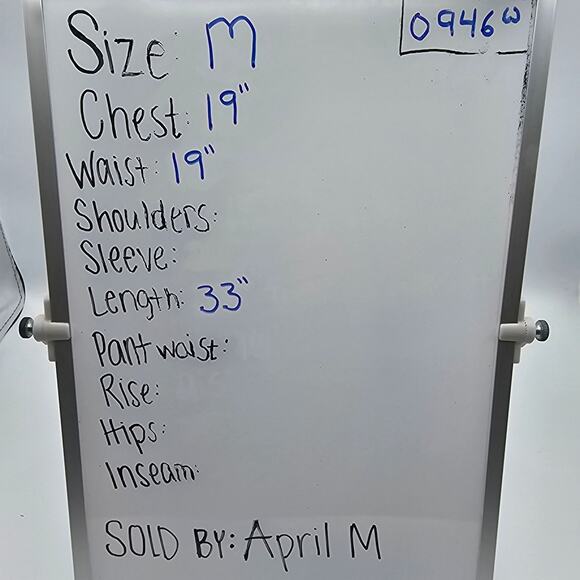 Size: M
0946W
Chest: 19"
Waist: 19"
Shoulders:
Sleeve:
Length: 33"
Pant waist:
Rise:
Hips:
Inseam:
SOLD BY: April M